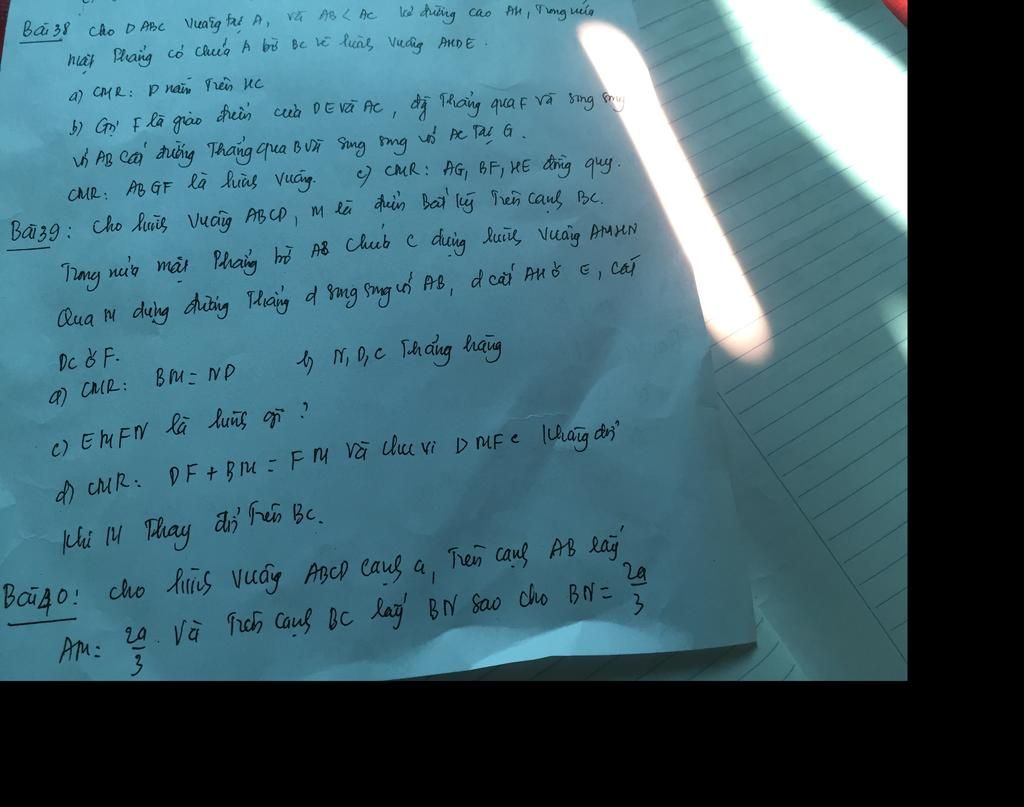 Bài 38 cho D ABC vuông tại A, và AB < AC kẻ đường cao AH, Trong nửa
mặt Phẳng có chứa A bờ BC vẽ hình vuông AHDE.
a) CMR: D nằm Trên HC
b) Gọi F là giao điểm của DE và AC, đg Thẳng qua F và song song
với AB cắt đường Thẳng qua B và song song với AC Tại G.
CMR: ABGF là hình vuông. c) CMR: AG, BF, HE đồng quy.
Bài 39: Cho hình vuông ABCD, M là điểm Bất kỳ Trên cạnh BC.
Trong nửa mặt Phẳng bờ AB chứa C dựng hình vuông AMHN
Qua M dựng đường Thẳng d song song với AB, d cắt AH ở E, cắt
DC ở F.
a) CMR: BM = ND b) N, D, C Thẳng hàng
c) EMFN là hình gì?
d) CMR: DF + BM = FM và chu vi D MFC không đổi
Khi M Thay đổi Trên BC.
Bài 40: cho hình vuông ABCD cạnh a, Trên cạnh AB lấy
AM = 2a/3. Và Trên cạnh BC lấy BN sao cho BN = 2a/3